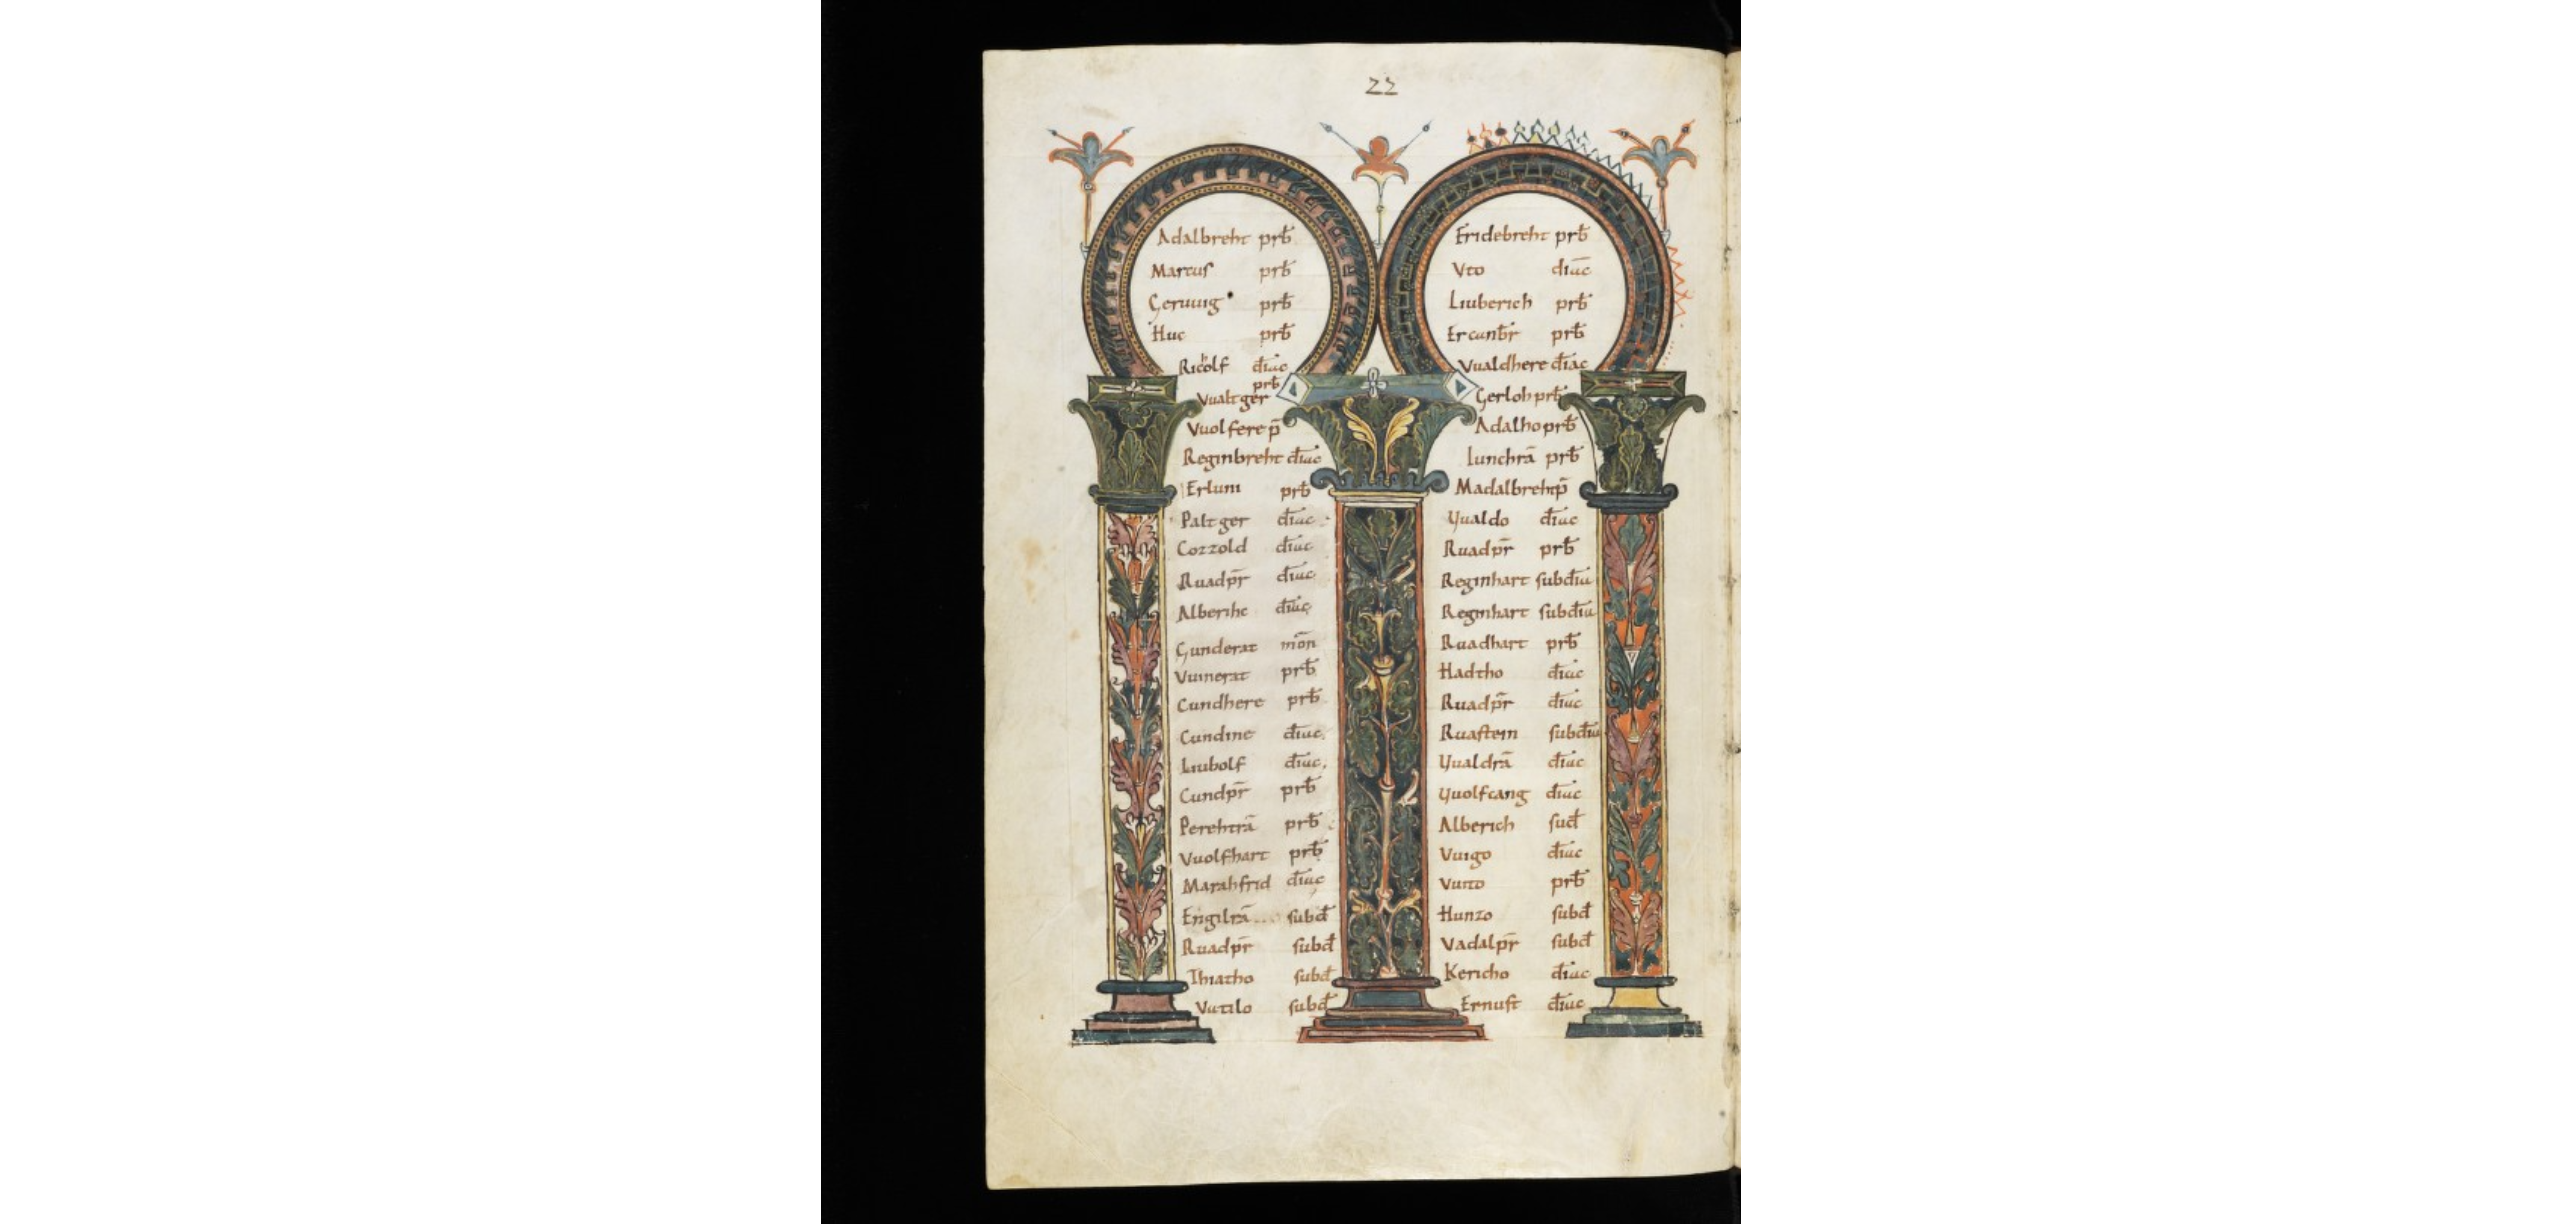 22
Adalbreht prb̄
Marcus prb̄
Geruuig prb̄
Huc prb̄
Richolf diac̄
prb̄
Vualtger
Vuolfere p̄
Reginbreht diac̄
Erluni prb̄
Paltger diac̄
Cozzold diac̄
Ruadpr̄ diac̄
Alberihc diac̄
Gunderat mōn
Vuinerat prb̄
Cundhere prb̄
Cundine diac̄
Liubolf diac̄
Cundpr̄ prb̄
Perehtrā prb̄
Vuolfhart prb̄
Marahfrid diac̄
Engilrā subd̄
Ruadpr̄ subd̄
Thiatho subd̄
Vutilo subd̄
Fridebreht prb̄
Vto diac̄
Liuberich prb̄
Ercanb̄r prb̄
Vualdhere diac̄
Gerloh prb̄
Adalho prb̄
Lunchrā prb̄
Madalbreht p̄
Vualdo diac̄
Ruadpr̄ prb̄
Reginhart subdia̅
Reginhart subdia̅
Ruadhart prb̄
Hadtho diac̄
Ruadpr̄ diac̄
Ruastein subdia̅
Vualdrā diac̄
Vuolfcang diac̄
Alberich sud̄
Vuigo diac̄
Vuito prb̄
Hunzo subd̄
Vadalpr̄ subd̄
Kericho diac̄
Ernust diac̄